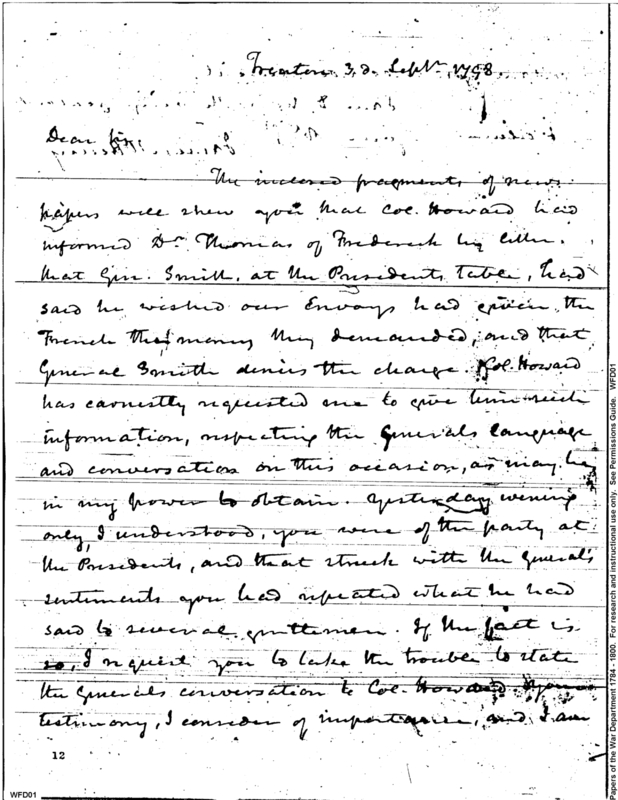 Trenton 3d. Sept. 1798
Dear Sir
The inclosed fragments of news-
papers will shew you that Col. Howard had
informed Dr. Thomas of Frederick by letter.
that Gen. Smith, at the Presidents table, had
said he wished our Envoys had given the
French the money they demanded, and that
General Smith denies the charge. Col. Howard
has earnestly requested me to give him such
information, respecting the Generals language
and conversation on this occasion, as may be
in my power to obtain. Yesterday evening
only, I understood, you were of the party at
the Presidents, and that struck with the General's
sentiments you had repeated what he had
said to several gentlemen. If the fact is
so, I request you to take the trouble to state
the Generals conversation to Col. Howard. Your
testimony, I consider of importance, and I am
12
WFD01
Papers of the War Department 1784 - 1800. For research and instructional use only. See Permissions Guide. WFD01